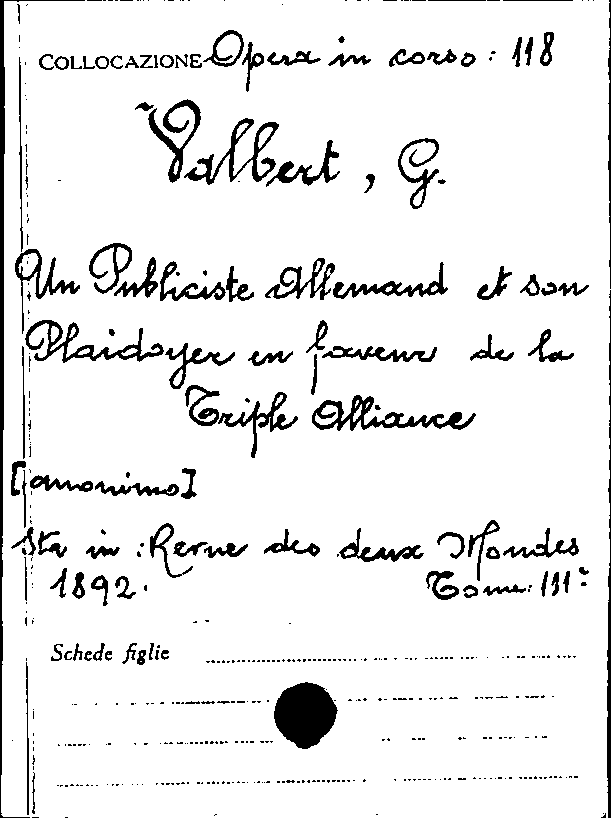 COLLOCAZIONE Opera in corso: 118
Valbert, G.
Un Publiciste Allemand et son
Plaidoyer en faveur de la
Triple Alliance
[anonimo]
Sta in: Revue des deux Mondes
1892. Tome: 111°
Schede figlie